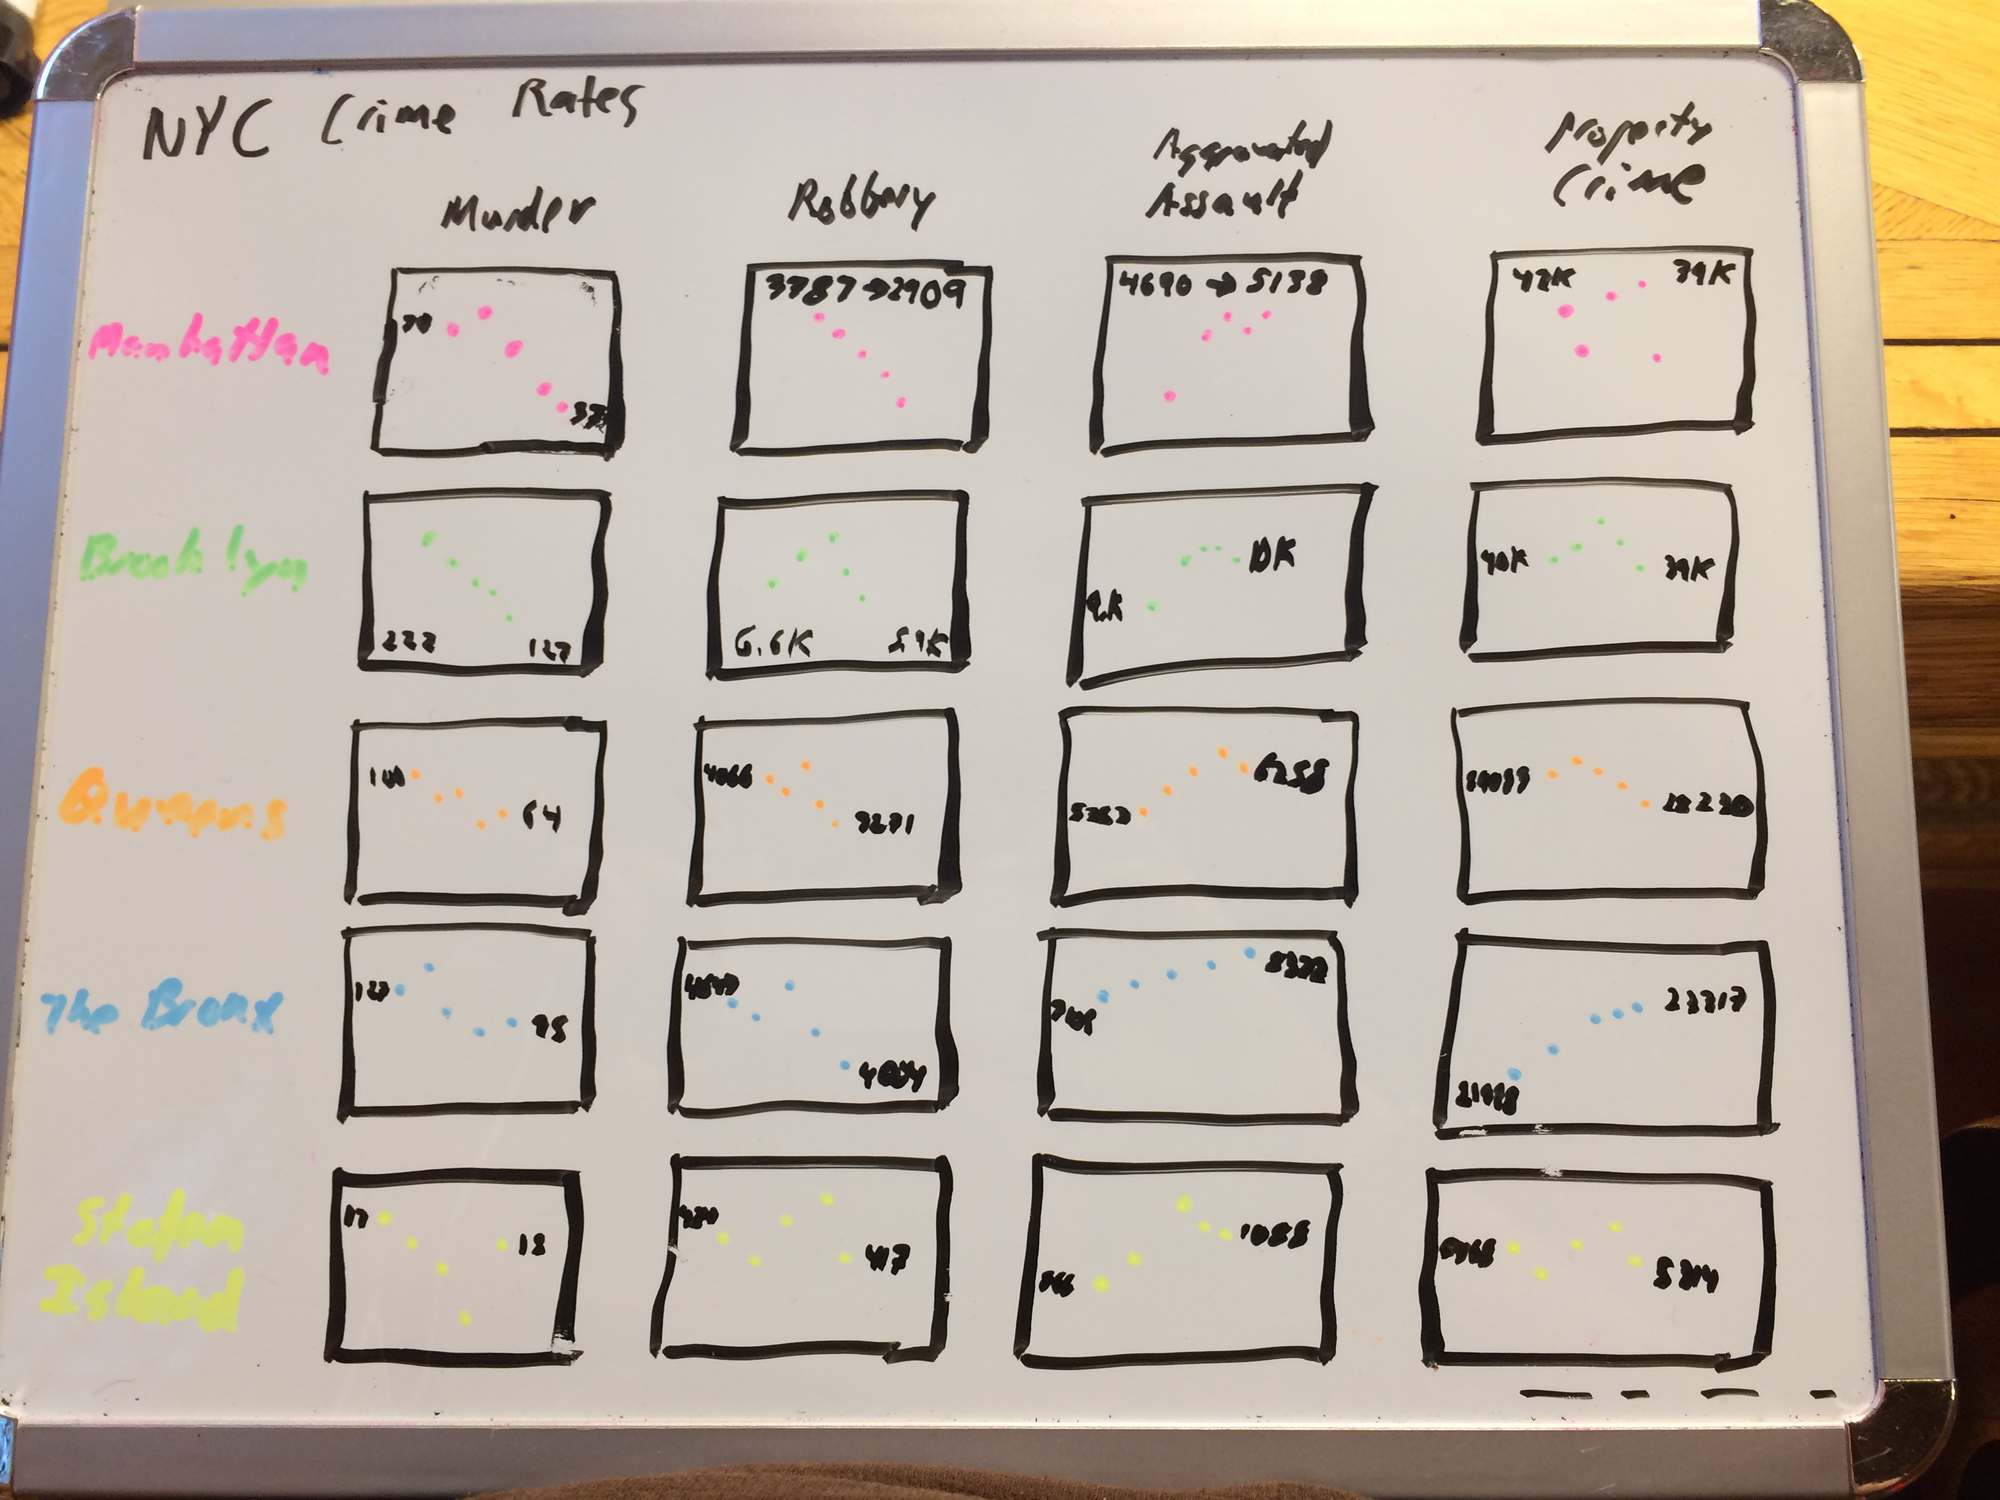 NYC Crime Rates
Murder Robbery Aggravated Assault Property Crime
Manhattan
70
3787→2909
4690→5138
42K 39K
Brooklyn
222 127
6.6K
9K 10K
40K 39K
Queens
64
4066 3271
6258
28230
The Bronx
127 95
23317
Staten Island
17 18
417
1088
5314